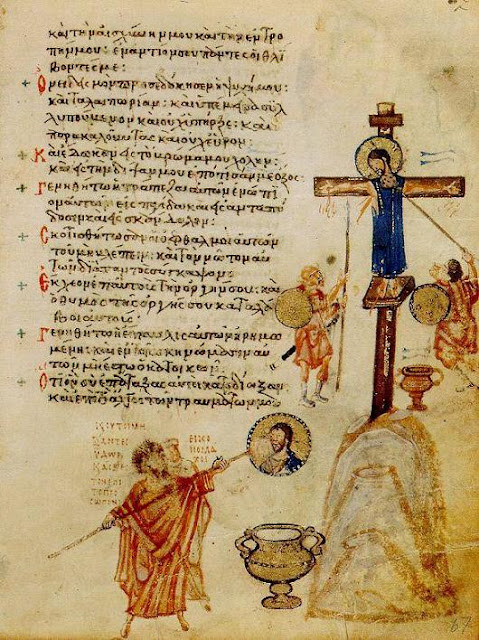 καὶ τὴν αἰσχύνην μου καὶ τὴν ἐντρο
πήν μου· ἐναντίον σου πάντες οἱ θλί
βοντές με:
Ὀνειδισμὸν προσεδόκησεν ἡ ψυχή μου
καὶ ταλαιπωρίαν: καὶ ὑπέμεινα συλ
λυπούμενον καὶ οὐχ ὑπῆρξε: καὶ
παρακαλοῦντας καὶ οὐχ εὗρον:
Καὶ ἔδωκαν εἰς τὸ βρῶμά μου χολὴν:
καὶ εἰς τὴν δίψαν μου ἐπότισάν με ὄξος:
Γενηθήτω ἡ τράπεζα αὐτῶν ἐνώπι
ον αὐτῶν εἰς παγίδα καὶ εἰς ἀνταπό
δοσιν καὶ εἰς σκάνδαλον:
Σκοτισθήτωσαν οἱ ὀφθαλμοὶ αὐτῶν
τοῦ μὴ βλέπειν: καὶ τὸν νῶτον αὐ
τῶν διὰ παντὸς σύγκαμψον:
Ἔκχεον ἐπ' αὐτοὺς τὴν ὀργήν σου: καὶ
ὁ θυμὸς τῆς ὀργῆς σου καταλά
βοι αὐτούς:
Γενηθήτω ἡ ἔπαυλις αὐτῶν ἠρημω
μένη: καὶ ἐν τοῖς σκηνώμασιν αὐ
τῶν μὴ ἔστω ὁ κατοικῶν:
Ὅτι ὃν σὺ ἐπάταξας αὐτοὶ κατεδίωξαν
καὶ ἐπὶ τὸ ἄλγος τῶν τραυμάτων μου
67